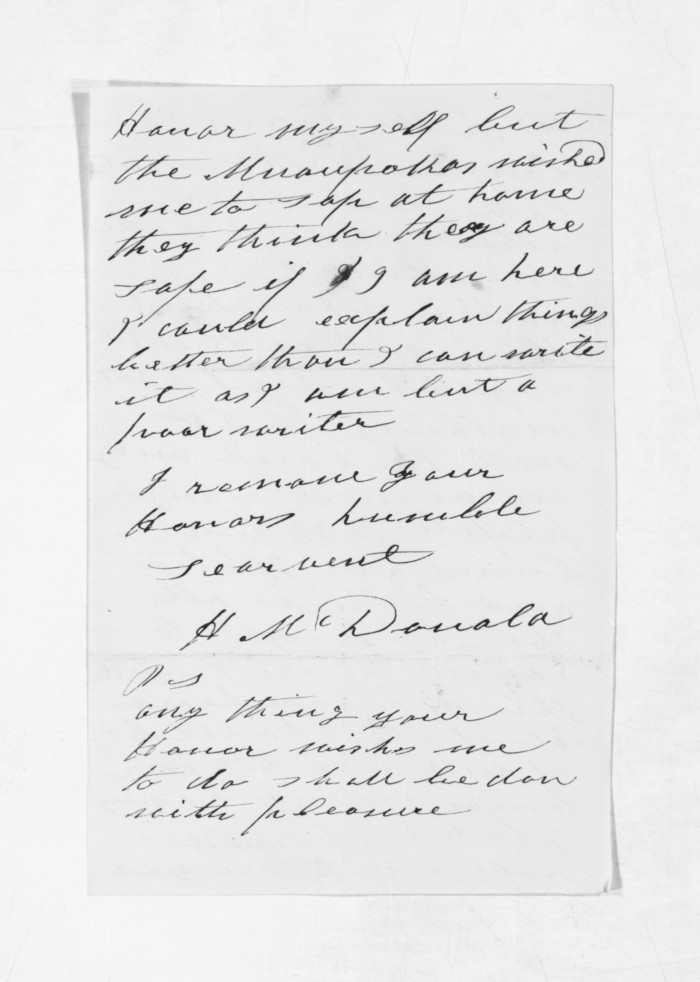 Honor my self but
the Muaupokos wished
me to sap at home
they think they are
safe if I am here
I could explain things
better than I can write
it as I am but a
poor writer
I remane your
Honors humble
Searvent
H McDonald
Ps
any thing your
Honor wishs me
to do shall be don
with pleasure